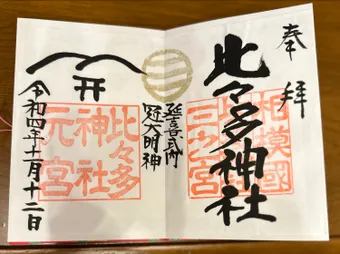 奉拝
相模國
三之宮
比々多神社
延喜式内
冠大明神
比々多
神社
元宮
令和四年十一月十二日